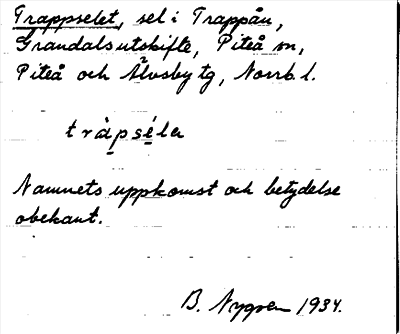 Trappselet, sel i Trappån,
Grandals utskifte, Piteå sn,
Piteå och Älvsby tg, Norrb. l.
tràpséla
Namnets uppkomst och betydelse
obekant.
B. Nygren 1934.